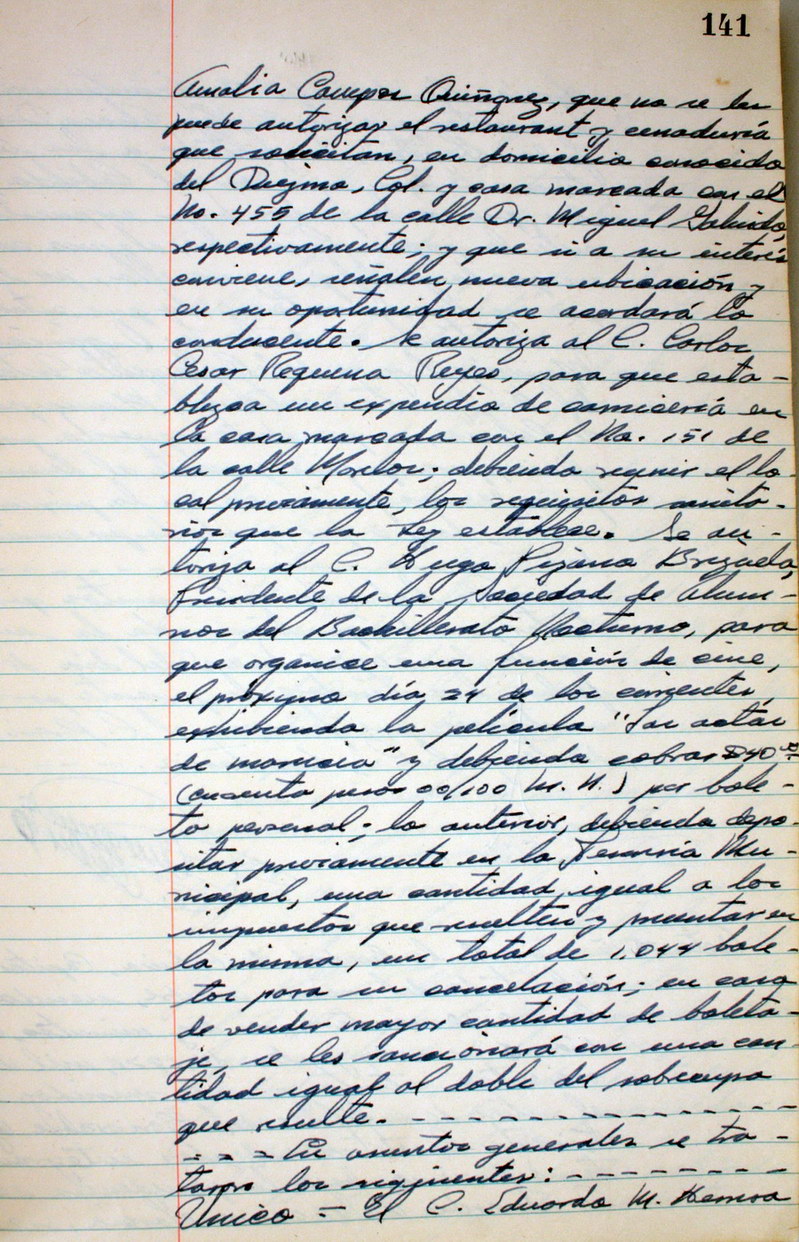 141
Amalia Campos Quiñonez, que no se les
puede autorizar el restaurant y cenaduría
que solicitan, en domicilio conocido
del Diezmo, Col. y casa marcada con el
No. 455 de la calle Dr. Miguel Galindo,
respectivamente; y que si a su interés
conviene, señalen nueva ubicación y
en su oportunidad se acordará lo
conducente. Se autoriza al C. Carlos
César Requena Reyes, para que esta-
blezca un expendio de carnicería en
la casa marcada con el No. 151 de
la calle Morelos; debiendo reunir el lo-
cal previamente, los requisitos sanita-
rios que la Ley establece. Se au-
toriza al C. Hugo Pizano Brizuela,
Presidente de la Sociedad de Alum-
nos del Bachillerato Nocturno, para
que organice una función de cine,
el próximo día 24 de los corrientes,
exhibiendo la película "Las
de" y debiendo cobrar $40.00
(cuarenta pesos 00/100 M.N.) por bole-
to personal; lo anterior, debiendo depo-
sitar previamente en la Tesorería Mu-
nicipal, una cantidad igual a los
impuestos que resulten y presentar en
la misma, un total de 1,044 bole-
tos para su cancelación; en caso
de vender mayor cantidad de boleta-
je, se les sancionará con una can-
tidad igual al doble del sobrecupo
que resulte. - - - - - - - - - - - - - -
- - - En asuntos generales se tra-
taron los siguientes: - - - - - - - -
Unico = El C. Eduardo M. Herrera